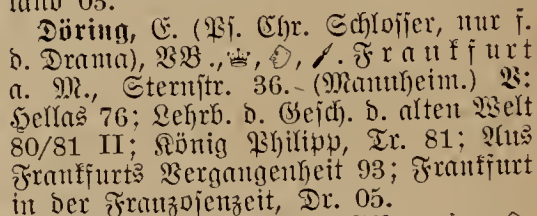 Döring, E. (Ps. Chr. Schlosser, nur f.
d. Drama), VB., Frankfurt
a. M., Sternstr. 36. (Mannheim.) V:
Hellas 76; Lehrb. d. Gesch. d. alten Welt
80/81 II; König Philipp, Tr. 81; Aus
Frankfurts Vergangenheit 93; Frankfurt
in der Franzosenzeit, Dr. 05.